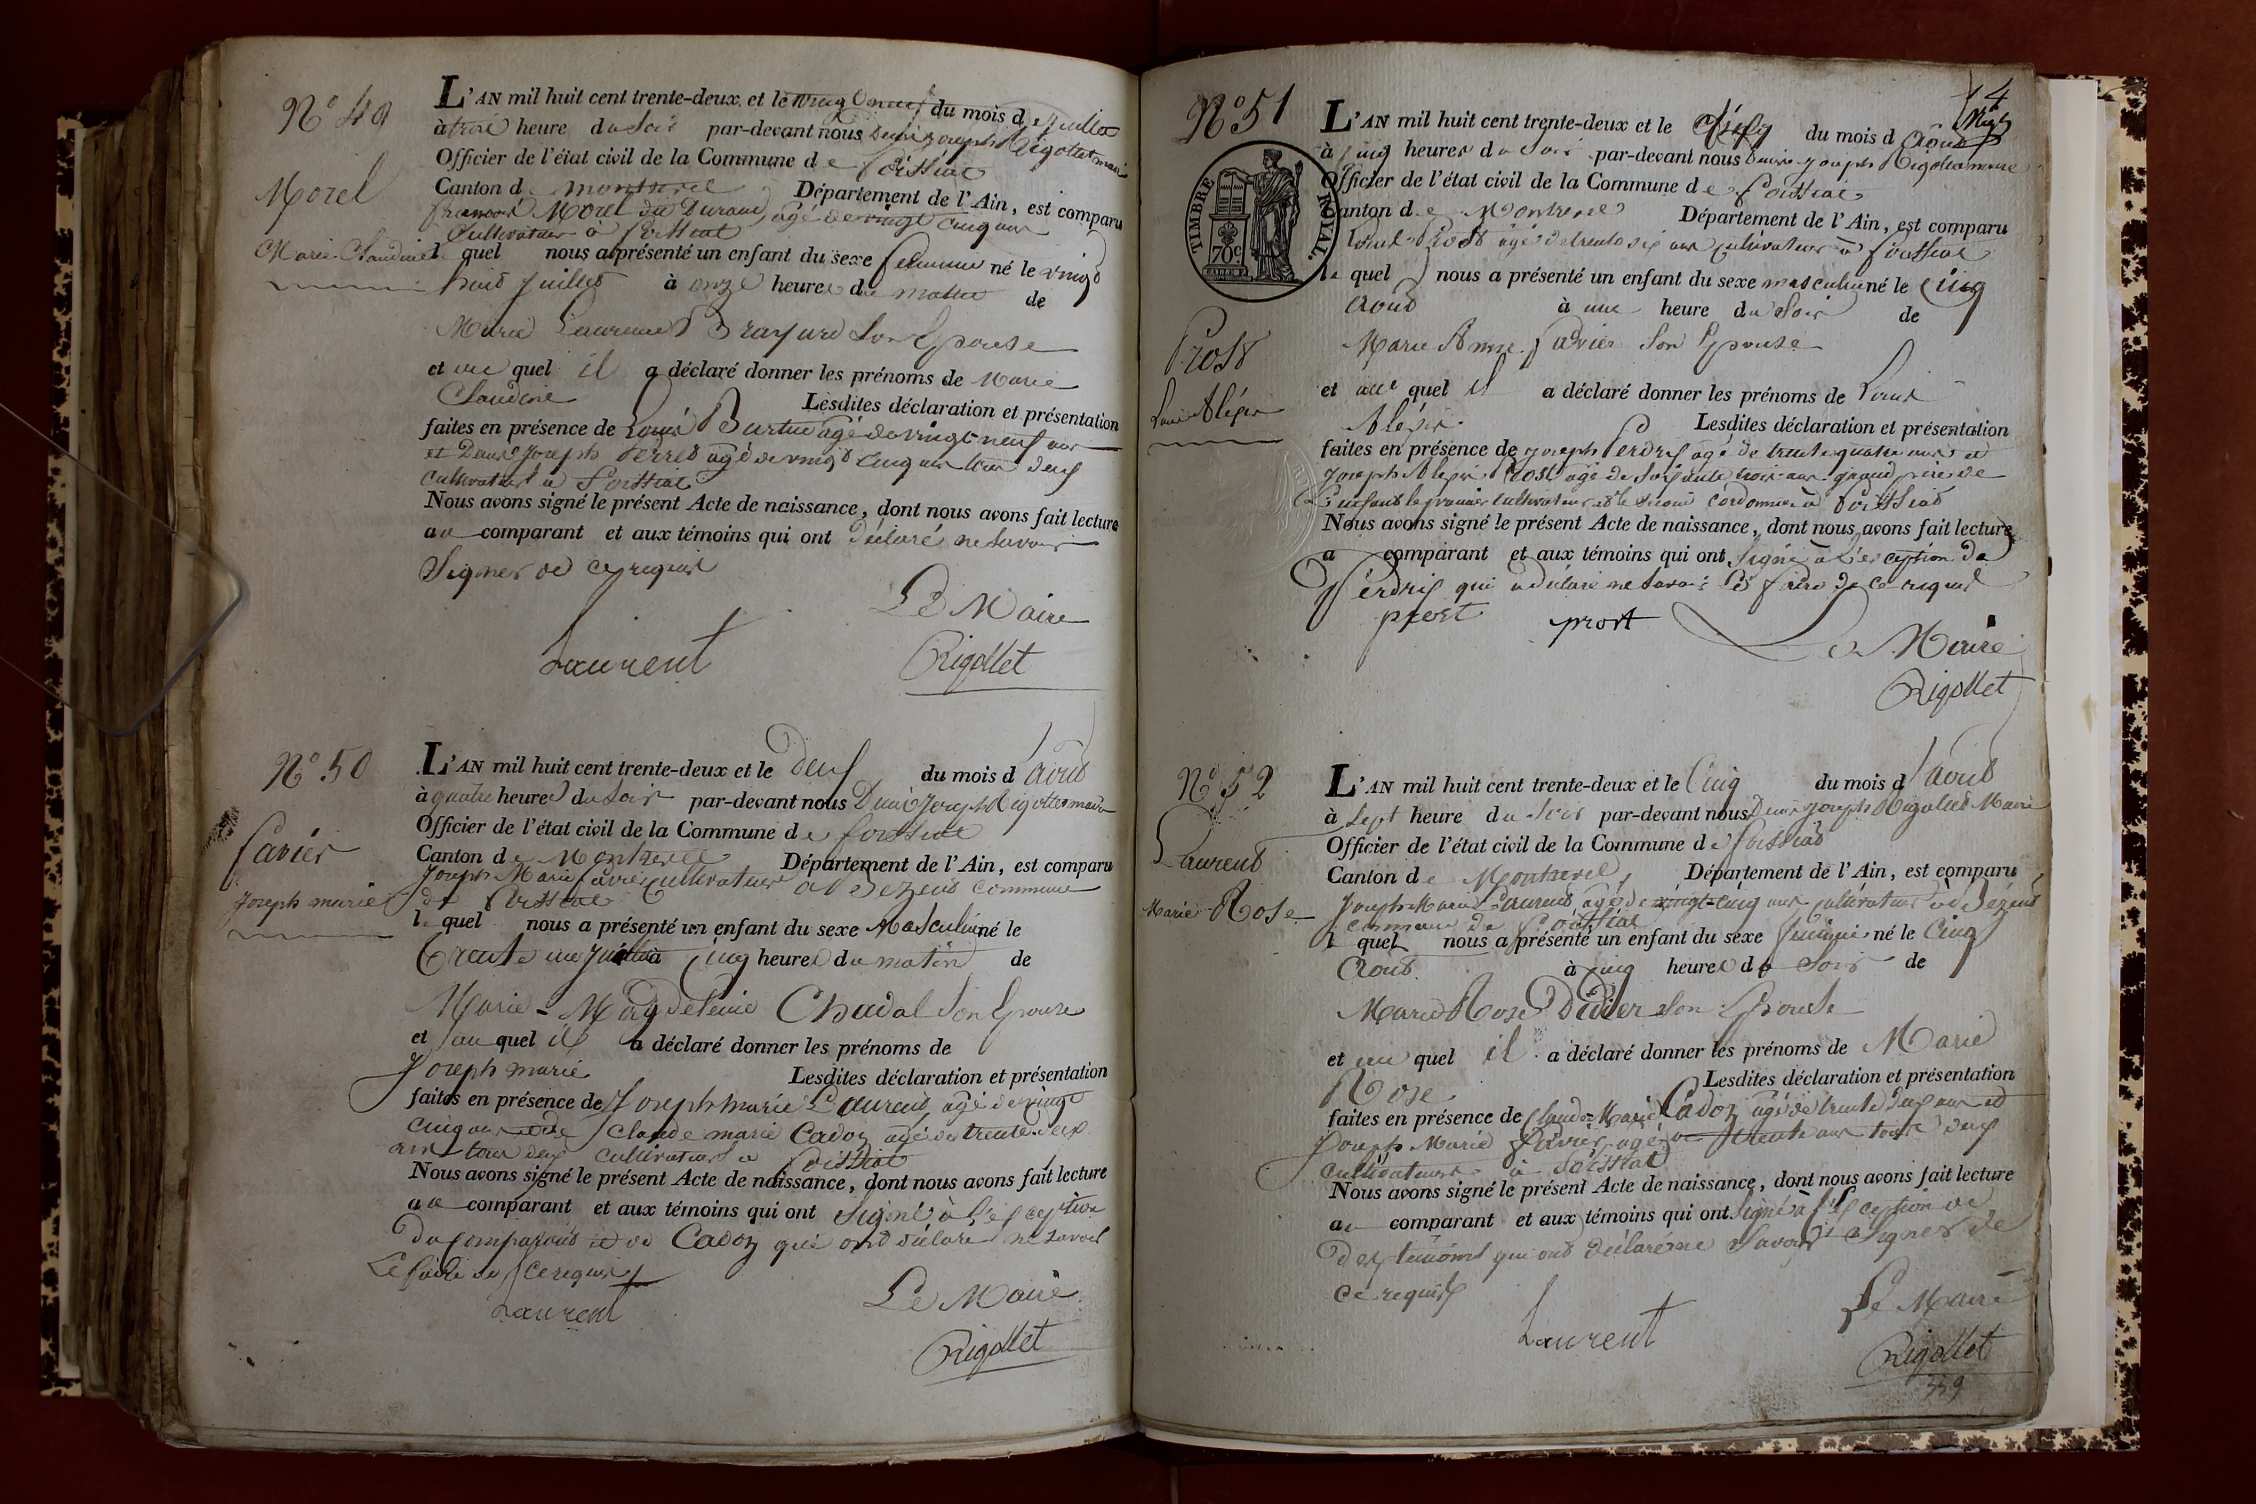 N° 49
Morel
Marie Claudine
L'AN mil huit cent trente-deux et le vingt neuf du mois de juillet
à trois heure du Soir par-devant nous Denis Joseph Rigollet maire
Officier de l'état civil de la Commune de Foissiat
Canton de montrevel Département de l'Ain, est comparu
françois Morel dit Durand, agé de vingt cinq ans
Cultivateur à foissiat
lequel nous a présenté un enfant du sexe féminin né le vingt
huit Juillet à onze heures du matin de
Marie Laurence Brayard Son Epouse
et au quel il a déclaré donner les prénoms de Marie
Claudine Lesdites déclaration et présentation
faites en présence de Louis Burtin agé de vingt-neuf ans
et Denis Joseph Perret agé de vingt cinq ans tous deux
cultivateurs à Foissiat
Nous avons signé le présent Acte de naissance, dont nous avons fait lecture
au comparant et aux témoins qui ont déclaré ne Savoir
Signer de ce requis
Le Maire
Laurent Rigollet
N° 50
favier
Joseph marie
L'AN mil huit cent trente-deux et le deux du mois d'août
à quatre heures du Soir par-devant nous Denis Joseph Rigollet maire
Officier de l'état civil de la Commune de foissiat
Canton de Montrevel Département de l'Ain, est comparu
Joseph Marie favier Cultivateur à Dezeud commune
de Foissiat
le quel nous a présenté un enfant du sexe Masculin né le
trente un Juillet à cinq heures du matin de
Marie-Magdeleine Chadal Son Epouse
et au quel il a déclaré donner les prénoms de
Joseph marie Lesdites déclaration et présentation
faites en présence de Joseph marie Laurent agé de vingt
cinq ans et de Claude marie Cadoz agé de trente deux
ans tous deux cultivateurs à Foissiat
Nous avons signé le présent Acte de naissance, dont nous avons fait lecture
au comparant et aux témoins qui ont signé à l'exception
du Comparant et de Cadoz qui ont déclaré ne savoir
Le faire de ce requis
Laurent Le Maire
Rigollet
14
N° 51
TIMBRE ROYAL
70 c.
Prost
Louis Alexis
L'AN mil huit cent trente-deux et le cinq du mois d Août
à cinq heures du Soir par-devant nous Denis Joseph Rigollet maire
Officier de l'état civil de la Commune de foissiat
Canton de Montrevel Département de l'Ain, est comparu
Louis Prost agé de trente six ans cultivateur à foissiat
le quel nous a présenté un enfant du sexe masculin né le Cinq
Août à une heure du Soir de
Marie Anne favier Son Epouse
et au quel il a déclaré donner les prénoms de Louis
Alexis. Lesdites déclaration et présentation
faites en présence de Joseph Perdrix agé de trente quatre ans et
Joseph Alexis Prost agé de soixante trois ans grand père de
L'enfant le premier cultivateur et le second Cordonnier à foissiat
Nous avons signé le présent Acte de naissance, dont nous avons fait lecture
a comparant et aux témoins qui ont signé à l'exception de
Perdrix qui a déclaré ne savoir le faire de ce requis
prost prost
Le Maire
Rigollet
N° 52
Laurent
Marie-Rose
L'AN mil huit cent trente-deux et le Cinq du mois d'août
à sept heure du Soir par-devant nous Denis Joseph Rigollet Maire
Officier de l'état civil de la Commune de foissiat
Canton de Montrevel, Département de l'Ain, est comparu
Joseph Marie Laurent agé de vingt-cinq ans cultivateur à Dezeud
commune de Foissiat
l quel nous a présenté un enfant du sexe féminin né le Cinq
Août. à cinq heures du Soir de
Marie Rose Didier son Epouse
et au quel il a déclaré donner les prénoms de Marie
Rose Lesdites déclaration et présentation
faites en présence de Claude-Marie Cadoz agé de trente deux ans et
Joseph Marie favier agé de trente ans tous deux
cultivateurs à foissiat
Nous avons signé le présent Acte de naissance, dont nous avons fait lecture
au comparant et aux témoins qui ont signé à l'exception de
des témoins qui ont déclaré ne savoir Signer de
ce requis
Laurent Le Maire
Rigollet
339